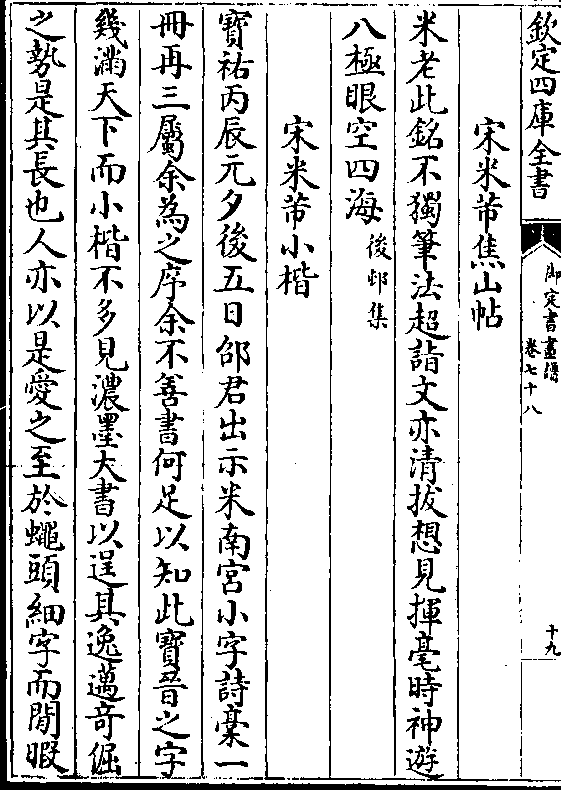 欽定四庫全書
御定書畫譜
卷七十八
十九
宋米芾焦山帖
米老此銘不獨筆法超詣文亦清拔想見揮毫時神遊
八極眼空四海後邨集
宋米芾小楷
寶祐丙辰元夕後五日邵君出示米南宮小字詩稾一
冊再三屬余為之序余不善書何足以知此寶晉之字
幾滿天下而小楷不多見濃墨大書以逞其逸邁奇倔
之勢是其長也人亦以是愛之至於蠅頭細字而閒暇